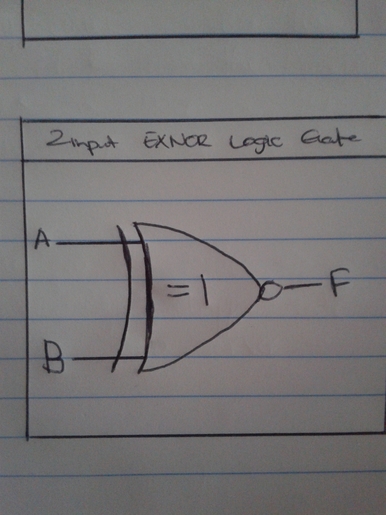 2input EXNOR Logic Gate
A
=1
F
B